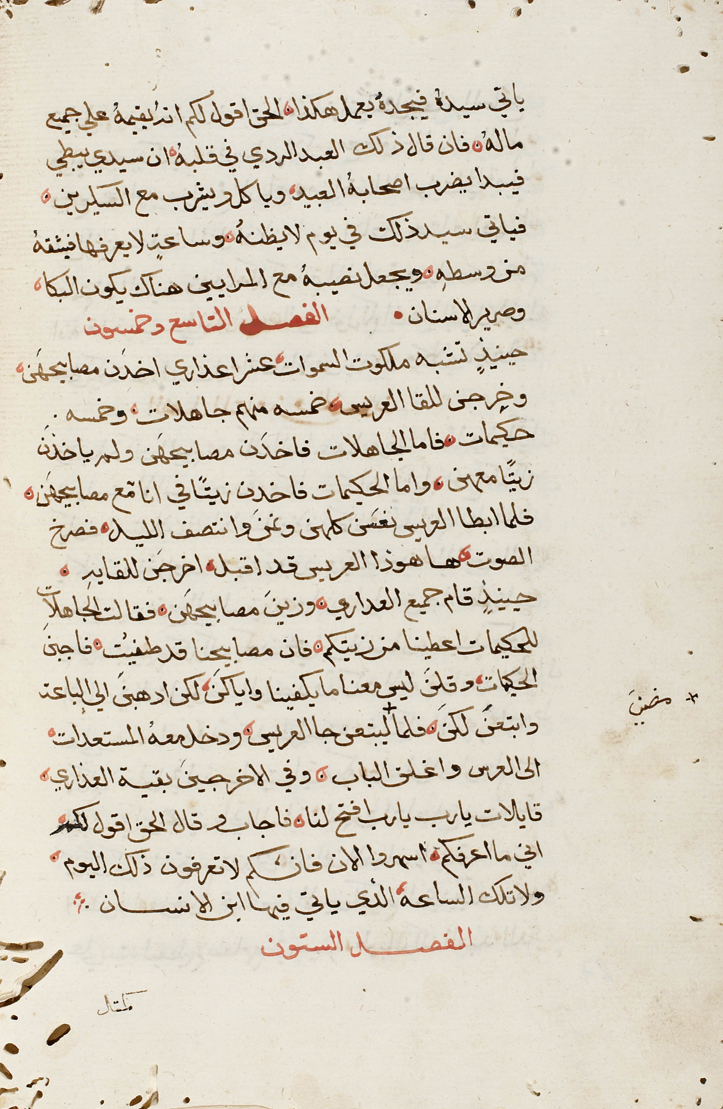 ياتي سيدهُ فيجدهُ يعمل هكذا الحق اقول لكم انهُ يقيمهُ على جميع
مالهُ فان قال ذلك العبد الردي في قلبهُ ان سيدي يبطي
فيبدا يضرب اصحابهُ العبيد وياكل ويشرب مع السكيرين
فياتي سيد ذلك في يوم لا يظنهُ وساعتٍ لا يعرفها فيشقهُ
من وسطهِ ويجعل نصيبهُ مع المرايين هناك يكون البكا
وصرير الاسنان الفصل التاسع وخمسون
حينيذٍ تشبه ملكوت السموات عشر اعذاري اخذن مصابيحهَن
وخرجن للقا العريس خمسه منهم جاهلات وخمسه
حكيمات فاما الجاهلات فاخذن مصابيحهَن ولم ياخذنَ
زيتًا معهن واما الحكيمات فاخدن زيتًا في انا مع مصابيحهَن
فلما ابطا العريس نعَسَن كلهن ونمَن وانتصف الليل فصرخ
الصوت ها هوذا العريس قد اقبل اخرجَن للقايهِ
حينيذٍ قام جميع العداري وزينَ مصابيحهَن فقالت الجاهلات
للحكيمات اعطينا من زيتكم فان مصابيحنا قد طفيُت فاجبنَ
الحكيمات وقلنَ ليس معنا ما يكفينا واياكنَ لكن ادهبنَ الى الباعة
وابتعنَ لكنَ فلما ليبتعن جا العريس ودخل معهُ المستعدات
الى العرس واغلق الباب وفي الاخر جينَ بقية العذاري
قايلات يارب يارب افتح لنا فاجاب وقال الحق اقول لكم
اني ما اعرفكم اسهروا الان فانكم لا تعرفون ذلك اليوم
ولا تلك الساعة الذي ياتي فيها ابن الانسان
الفصل الستون
مضينَ
كمثل